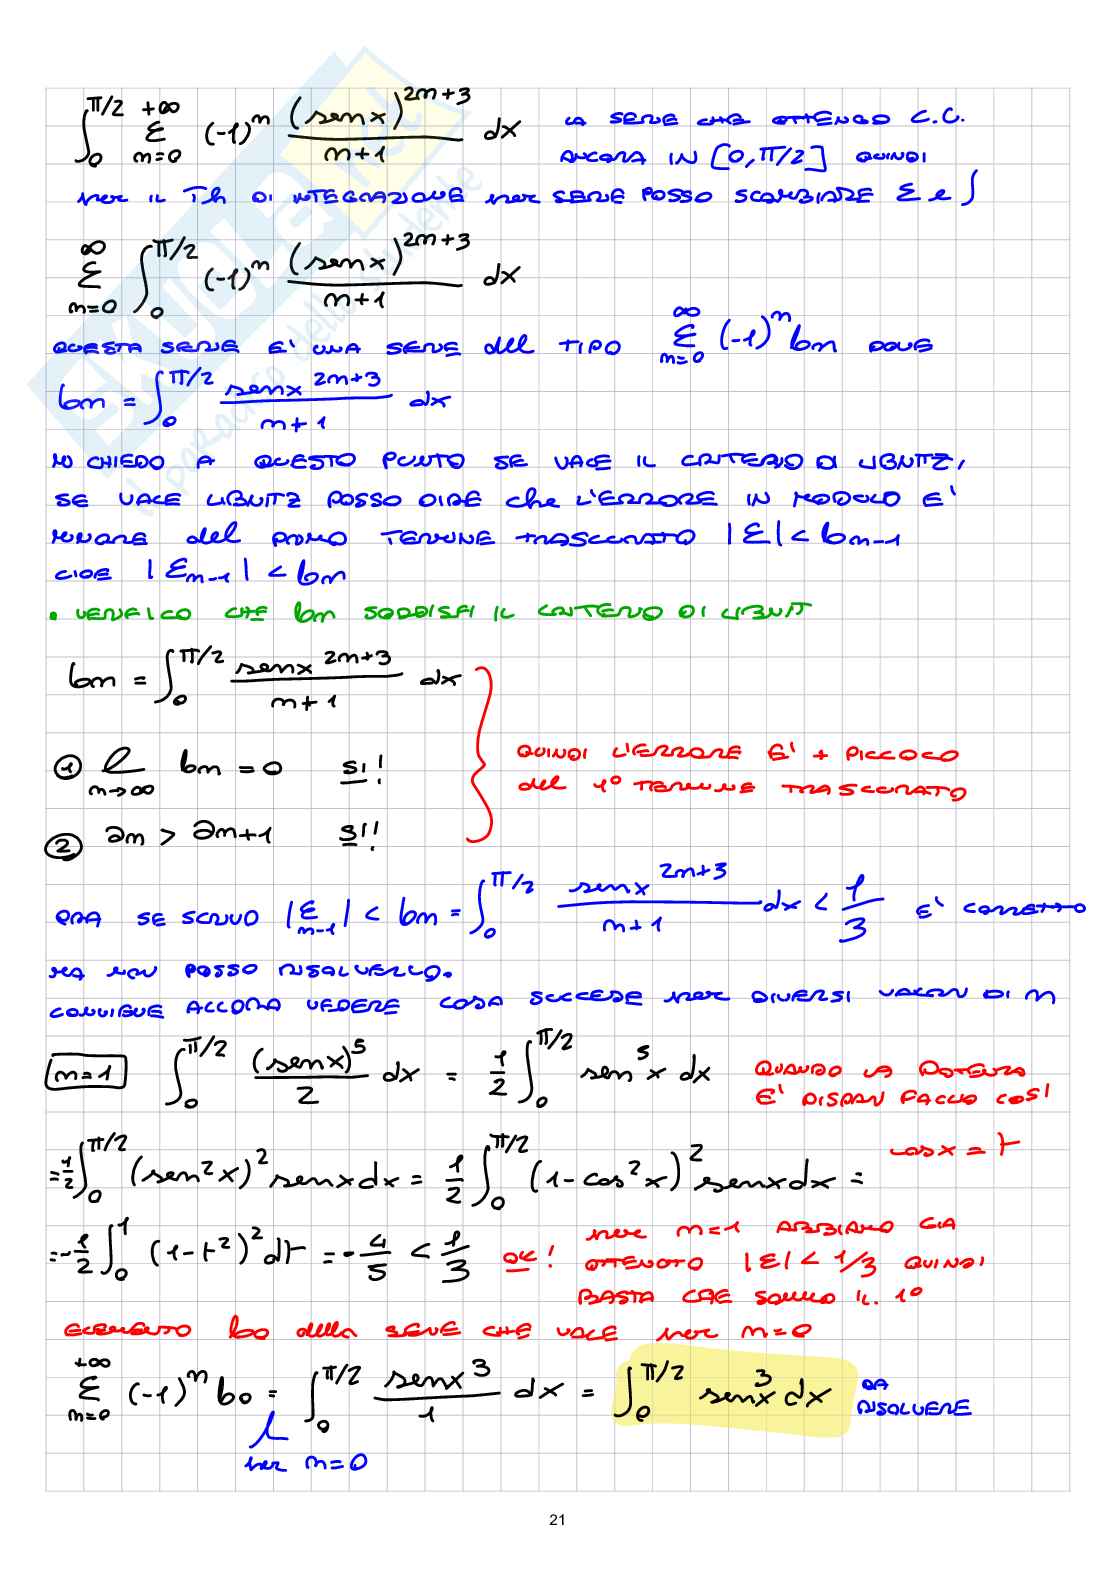 ∫₀^π/2 Σ_{n=0}^{+∞} (-1)^n (senx)^{2n+3}/(n+1) dx LA SERIE CHE OTTENGO C.U.
ANCORA IN [0,π/2] QUINDI
per IL Th DI INTEGRAZIONE per SERIE POSSO SCAMBIARE Σ e ∫
Σ_{n=0}^{∞} ∫₀^π/2 (-1)^n (senx)^{2n+3}/(n+1) dx
QUESTA SERIE E' UNA SERIE del TIPO Σ_{n=0}^{∞} (-1)^n bn DOVE
bn = ∫₀^π/2 senx^{2n+3}/(n+1) dx
MI CHIEDO A QUESTO PUNTO SE VALE IL CRITERIO DI LIBNITZ,
SE VALE LIBNITZ POSSO DIRE che L'ERRORE IN MODULO E'
MINORE del PRIMO TERMINE TRASCURATO |Σ| < b_{n-1}
CIOE |Σ_{n-1}| < bn
• VERIFICO CHE bn SODDISFI IL CRITERIO DI LIBNIT
bn = ∫₀^π/2 senx^{2n+3}/(n+1) dx
① l_{n→∞} bn = 0 SI!
QUINDI L'ERRORE E' + PICCOLO
del 1° TERMINE TRASCURATO
② an > an+1 SI!
ORA SE SCRIVO |Σ_{n-1}| < bn = ∫₀^π/2 senx^{2n+3}/(n+1) dx < 1/3 E' CORRETTO
MA NON POSSO RISOLVERLO.
CONVIENE ALLORA VEDERE COSA SUCCEDE per DIVERSI VALORI DI n
n=1 ∫₀^π/2 (senx)^5/2 dx = 1/2 ∫₀^π/2 sen^5 x dx QUANDO LA POTENZA
E' DISPARI FACCIO COSI'
=1/2 ∫₀^π/2 (sen²x)² senx dx = 1/2 ∫₀^π/2 (1-cos²x)² senx dx = cosx = t
=-1/2 ∫₀^1 (1-t²)² dt = -4/5 < 1/3 OK! per n=1 ABBIAMO GIA
OTTENUTO |Σ| < 1/3 QUINDI
BASTA CHE SOMMO IL 1°
ELEMENTO b0 della SERIE CHE VALE per n=0
Σ_{n=0}^{+∞} (-1)^n b0 = ∫₀^π/2 senx³/1 dx = ∫₀^π/2 senx³ dx DA
RISOLVERE
per n=0
21